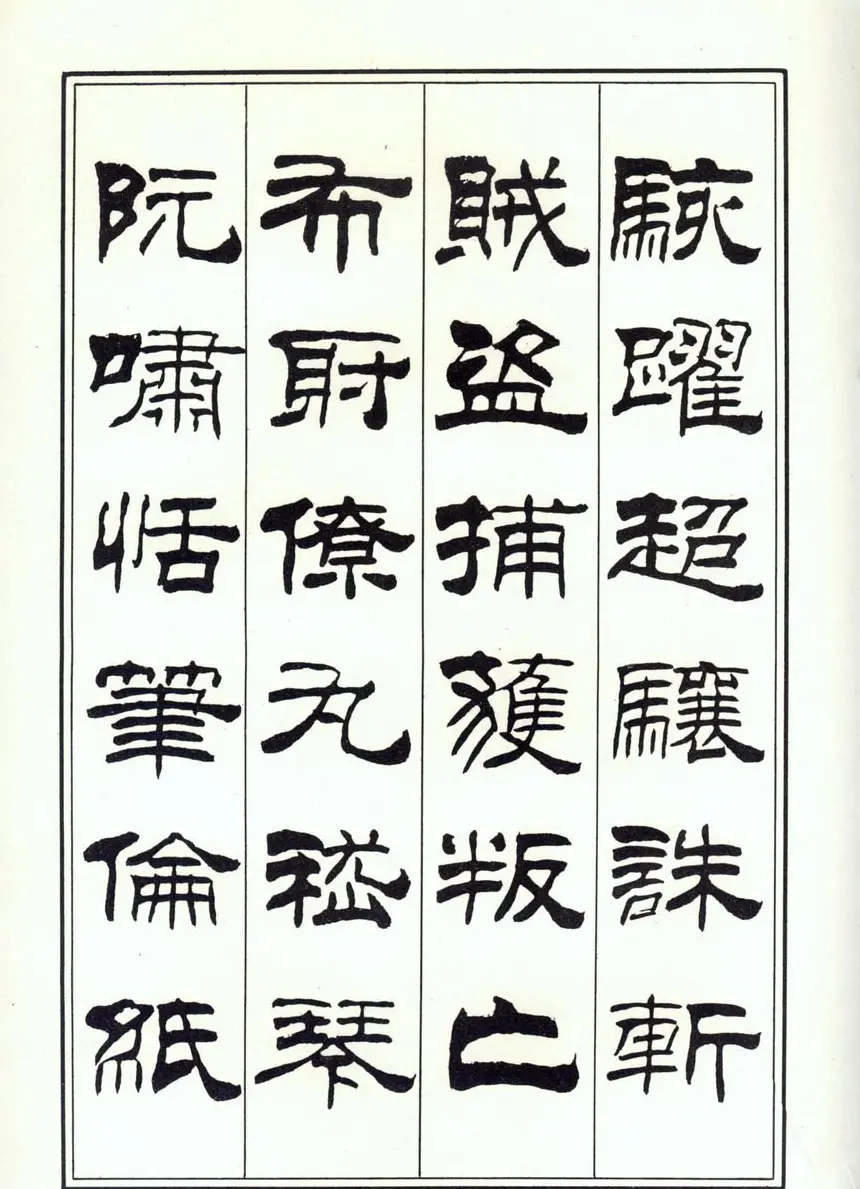 駭躍超驤誅斬
賊盜捕獲叛亡
布射僚丸嵇琴
阮嘯恬筆倫紙